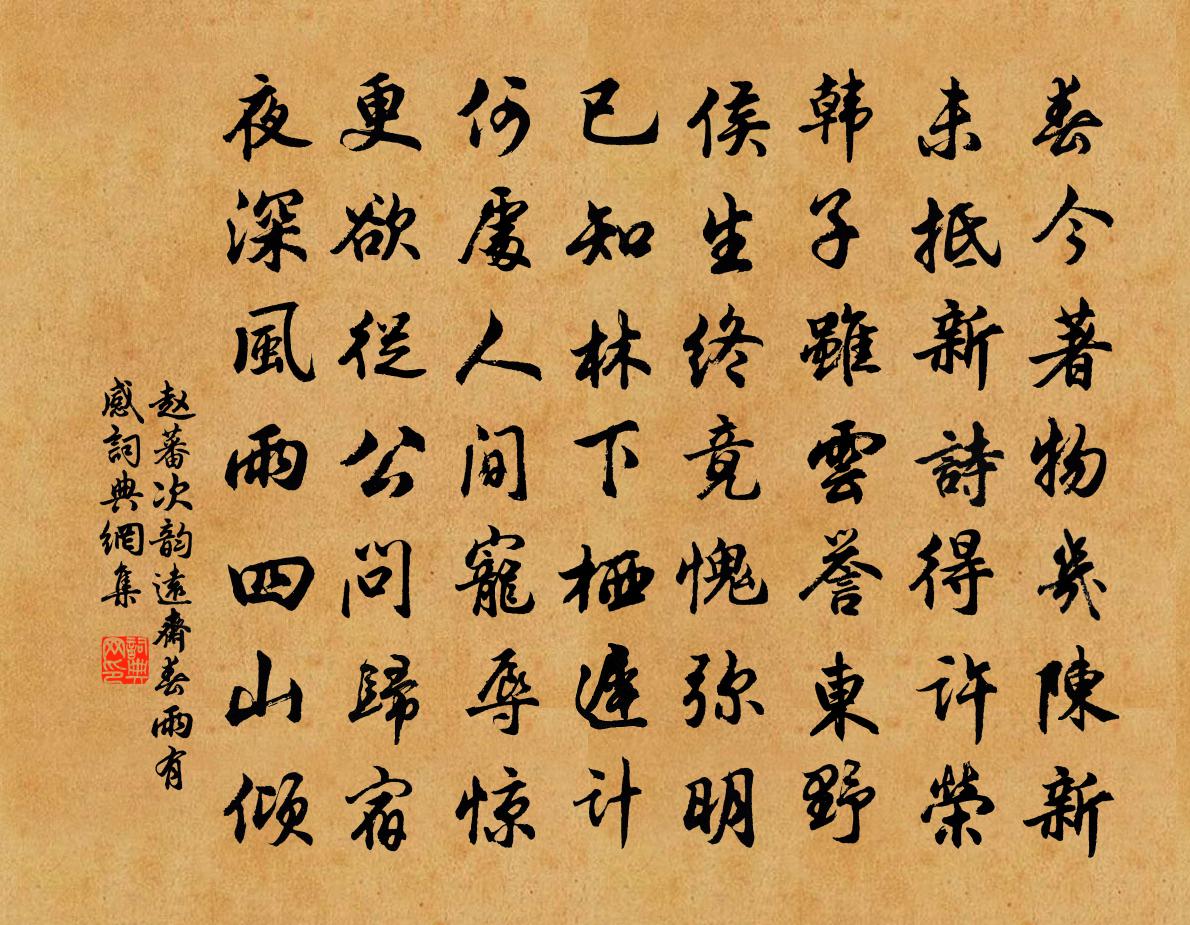 春今著物幾陳新
未抵新詩得許榮
韩子雖雲誉東野
侯生终竟愧弥明
已知林下栖遲计
何處人间寵辱惊
更欲從公问歸宿
夜深風雨四山倾
赵蕃次韵遠齋春雨有
感詞典網集
詞典网印